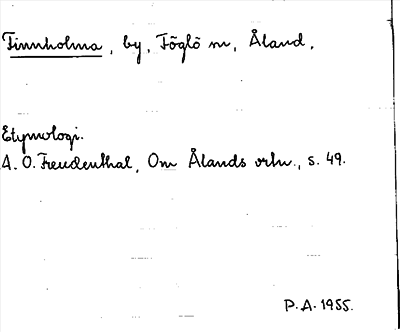 Finnholma, by, Föglö sn, Åland.
Etymologi.
A. O. Freudenthal, Om Ålands ortn., s. 49.
P. A. 1955.